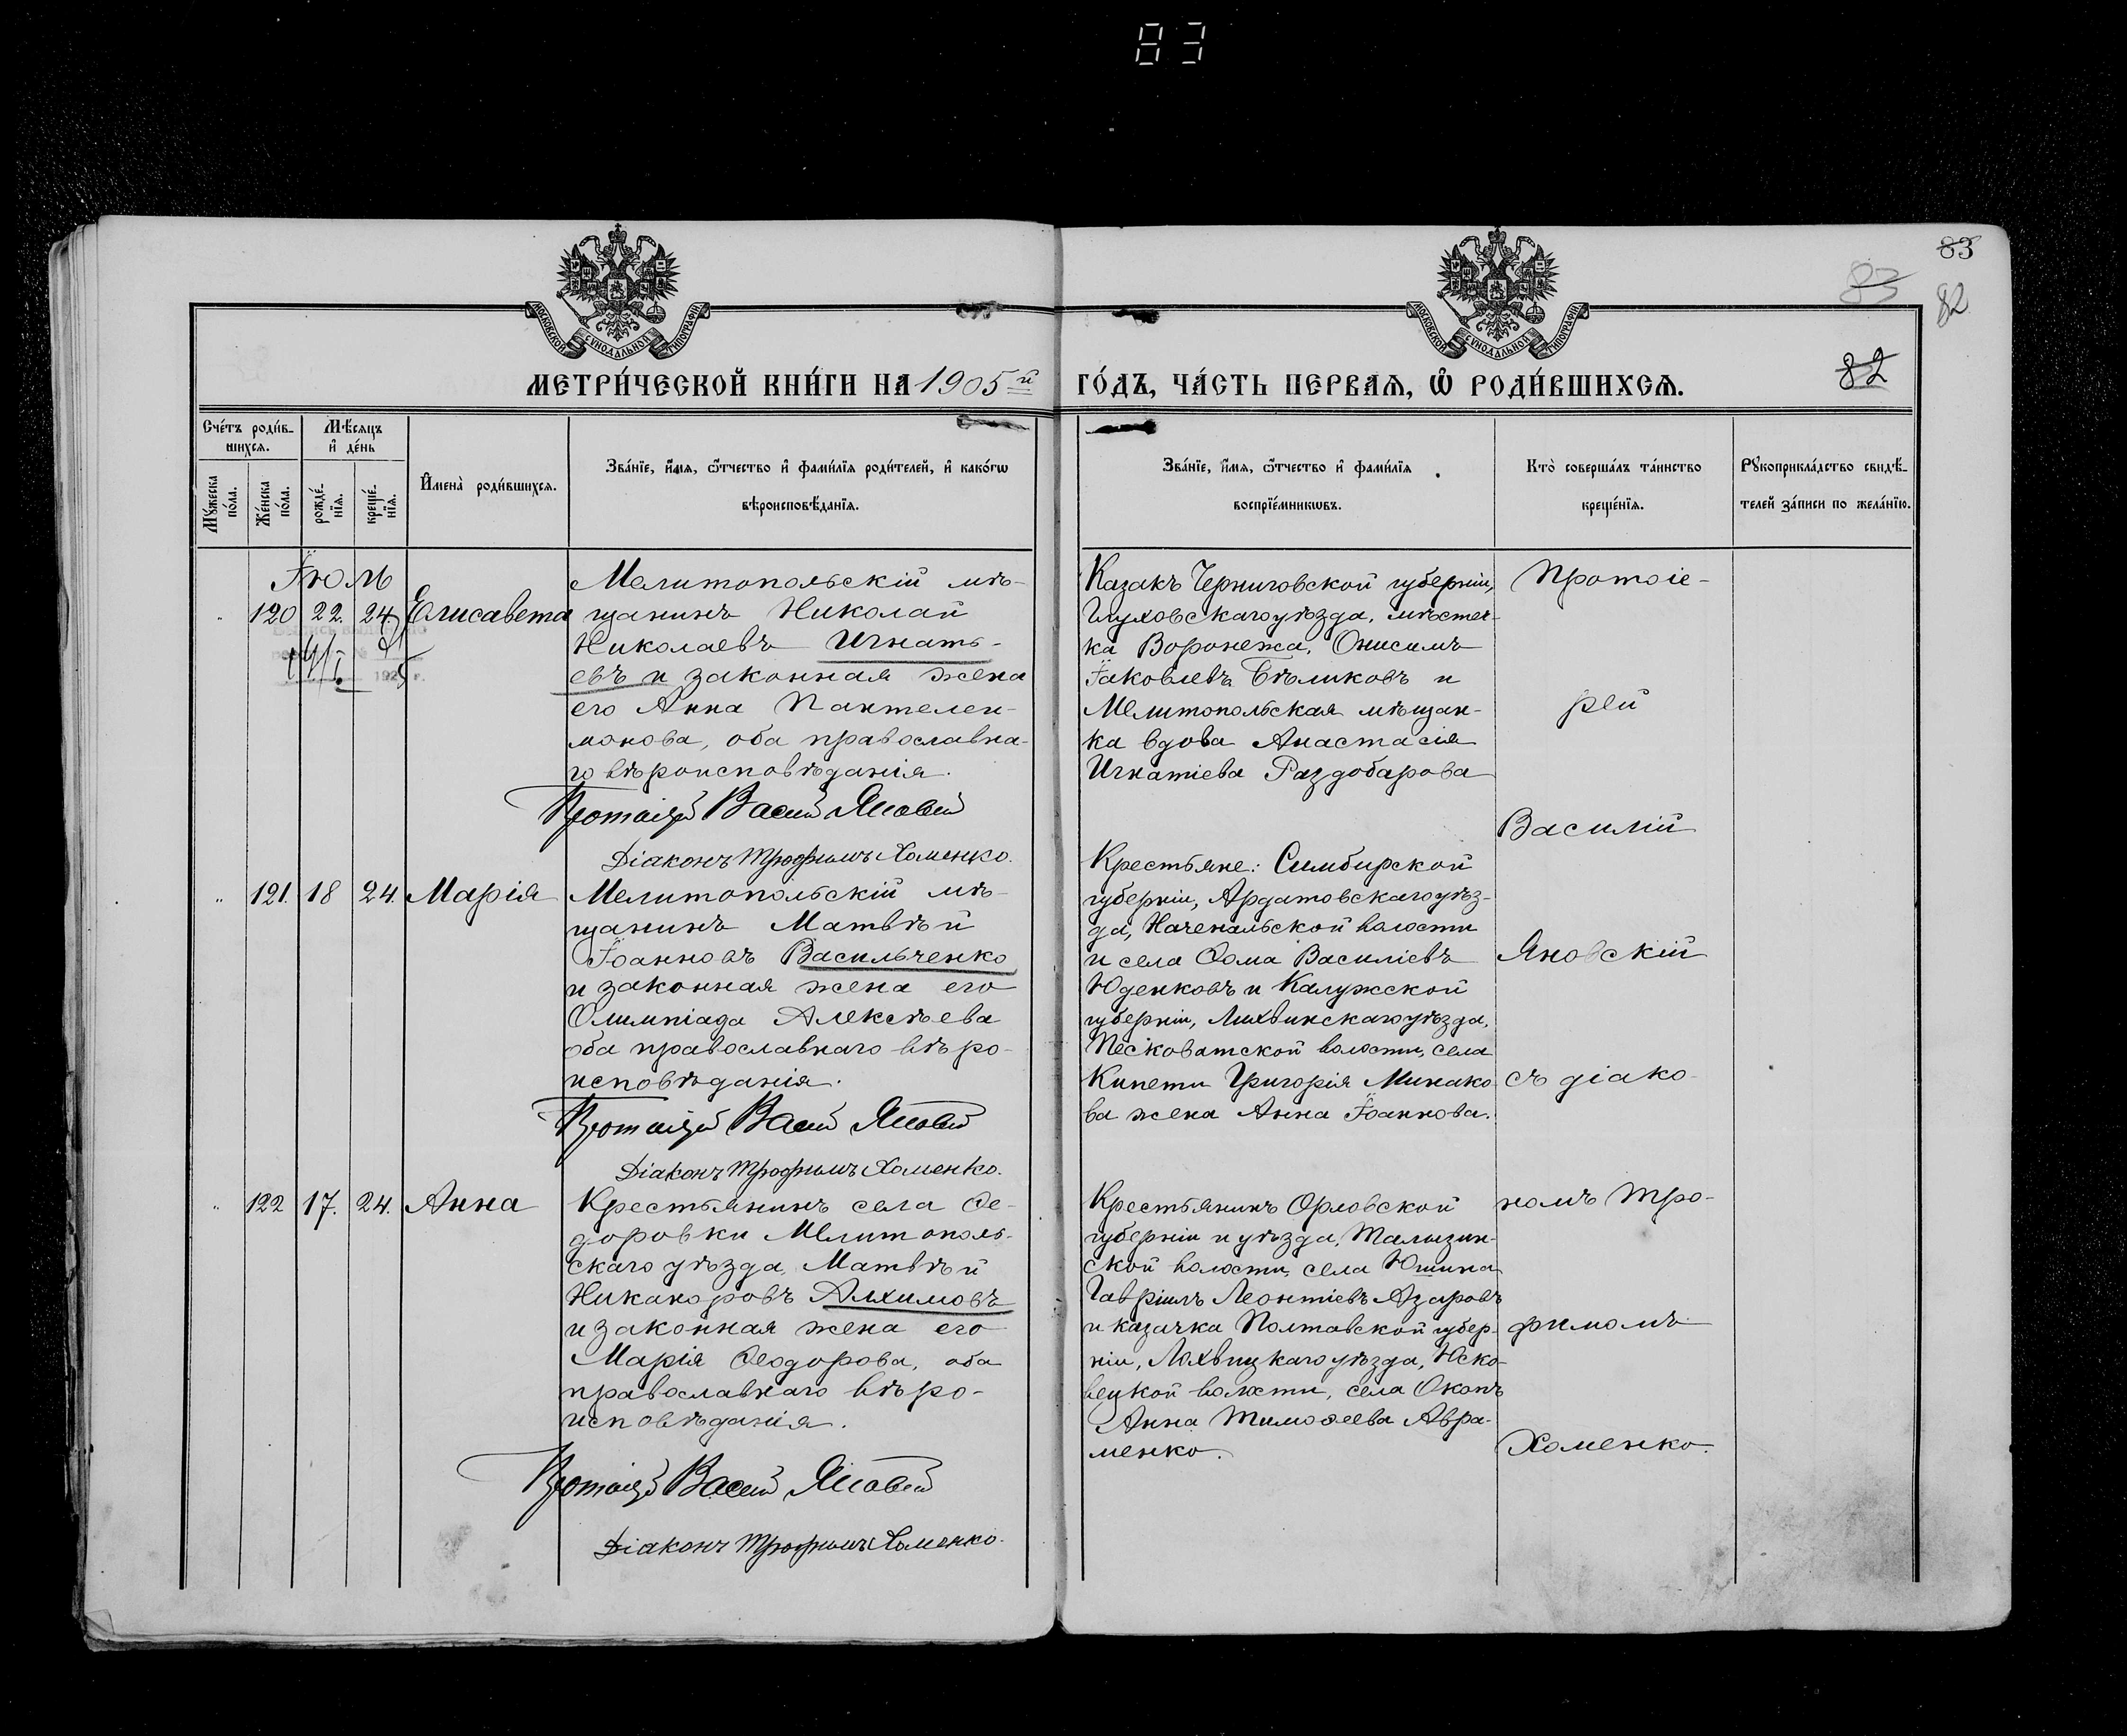 83
83
83
82
82
МОСКОВСКОЙ СУНОДАЛЬНОЙ ТИПОГРАФІИ
МОСКОВСКОЙ СУНОДАЛЬНОЙ ТИПОГРАФІИ
МЕТРИ́ЧЕСКОЙ КНИ́ГИ НА 1905й ГО́ДЪ, ЧА́СТЬ ПЕРВАѦ, Ѡ҆ РОДИ́ВШИХСѦ.
Сче́тъ роди́в-
шихсѧ.
Мꙋжеска
по́ла.
Же́нска
по́ла.
Мѣ́сѧцъ
и҆ де́нь
рожде́-
нїѧ.
креще́-
нїѧ.
И҆мена̀ роди́вшихсѧ.
Зва́нїе, и҆́мѧ, ѻ҆́тчество и҆ фами́лїѧ роди́телей, и҆ како́гѡ
вѣроисповѣ́данїѧ.
Зва́нїе, и҆́мѧ, ѻ҆́тчество и҆ фами́лїѧ
воспрїе́мникѡвъ.
Кто̀ соверша́лъ та́инство
креще́нїѧ.
Рꙋкоприкла́дство свидѣ́-
телей за́писи по жела́нїю.
Іюль
120 22. 24. Елисавета
192 г.
Мелитопольскій мѣ-
щанинъ Николай
Николаевъ Игнать-
евъ и законная жена
его Анна Пантелеи-
монова, оба православна-
го вѣроисповѣданія.
Протоіерей Василій Яновскій
Діаконъ Трофимъ Хоменко.
Казакъ Черниговской губерніи,
Глуховскаго уѣзда, мѣстеч-
ка Воронежа, Онисимъ
Іаковлевъ Бѣликовъ и
Мелитопольская мѣщан-
ка вдова Анастасія
Игнатіева Раздобарова
" 121. 18 24. Марія
Мелитопольскій мѣ-
щанинъ Матвѣй
Іоанновъ Васильченко
и законная жена его
Олимпіада Алексѣева
оба православнаго вѣро-
исповѣданія.
Протоіерей Василій Яновскій
Діаконъ Трофимъ Хоменко.
Крестьяне: Симбирской
губерніи, Ардатовскаго уѣз-
да, Наченальской волости
и села Ѳома Василіевъ
Юденковъ и Калужской
губерніи, Лихвинскаго уѣзда,
Песковатской волости, села
Кипети Григорія Минако-
ва жена Анна Іоаннова.
" 122 17. 24. Анна
Крестьянинъ села Ѳе-
доровки Мелитополь-
скаго уѣзда, Матвѣй
Никаноровъ Алхимовъ
и законная жена его
Марія Ѳеодорова, оба
православнаго вѣро-
исповѣданія.
Протоіерей Василій Яновскій
Діаконъ Трофимъ Хоменко.
Крестьянинъ Орловской
губерніи и уѣзда, Талызин-
ской волости, села Юшина
Гавріилъ Леонтіевъ Азаровъ
и казачка Полтавской губер-
ніи, Лохвицкаго уѣзда, Юско-
вецкой волости, села Окопъ
Анна Тимоѳеева Авра-
менко.
Протоіе-
рей
Василій
Яновскій
съ діако-
номъ Тро-
фимомъ
Хоменко.